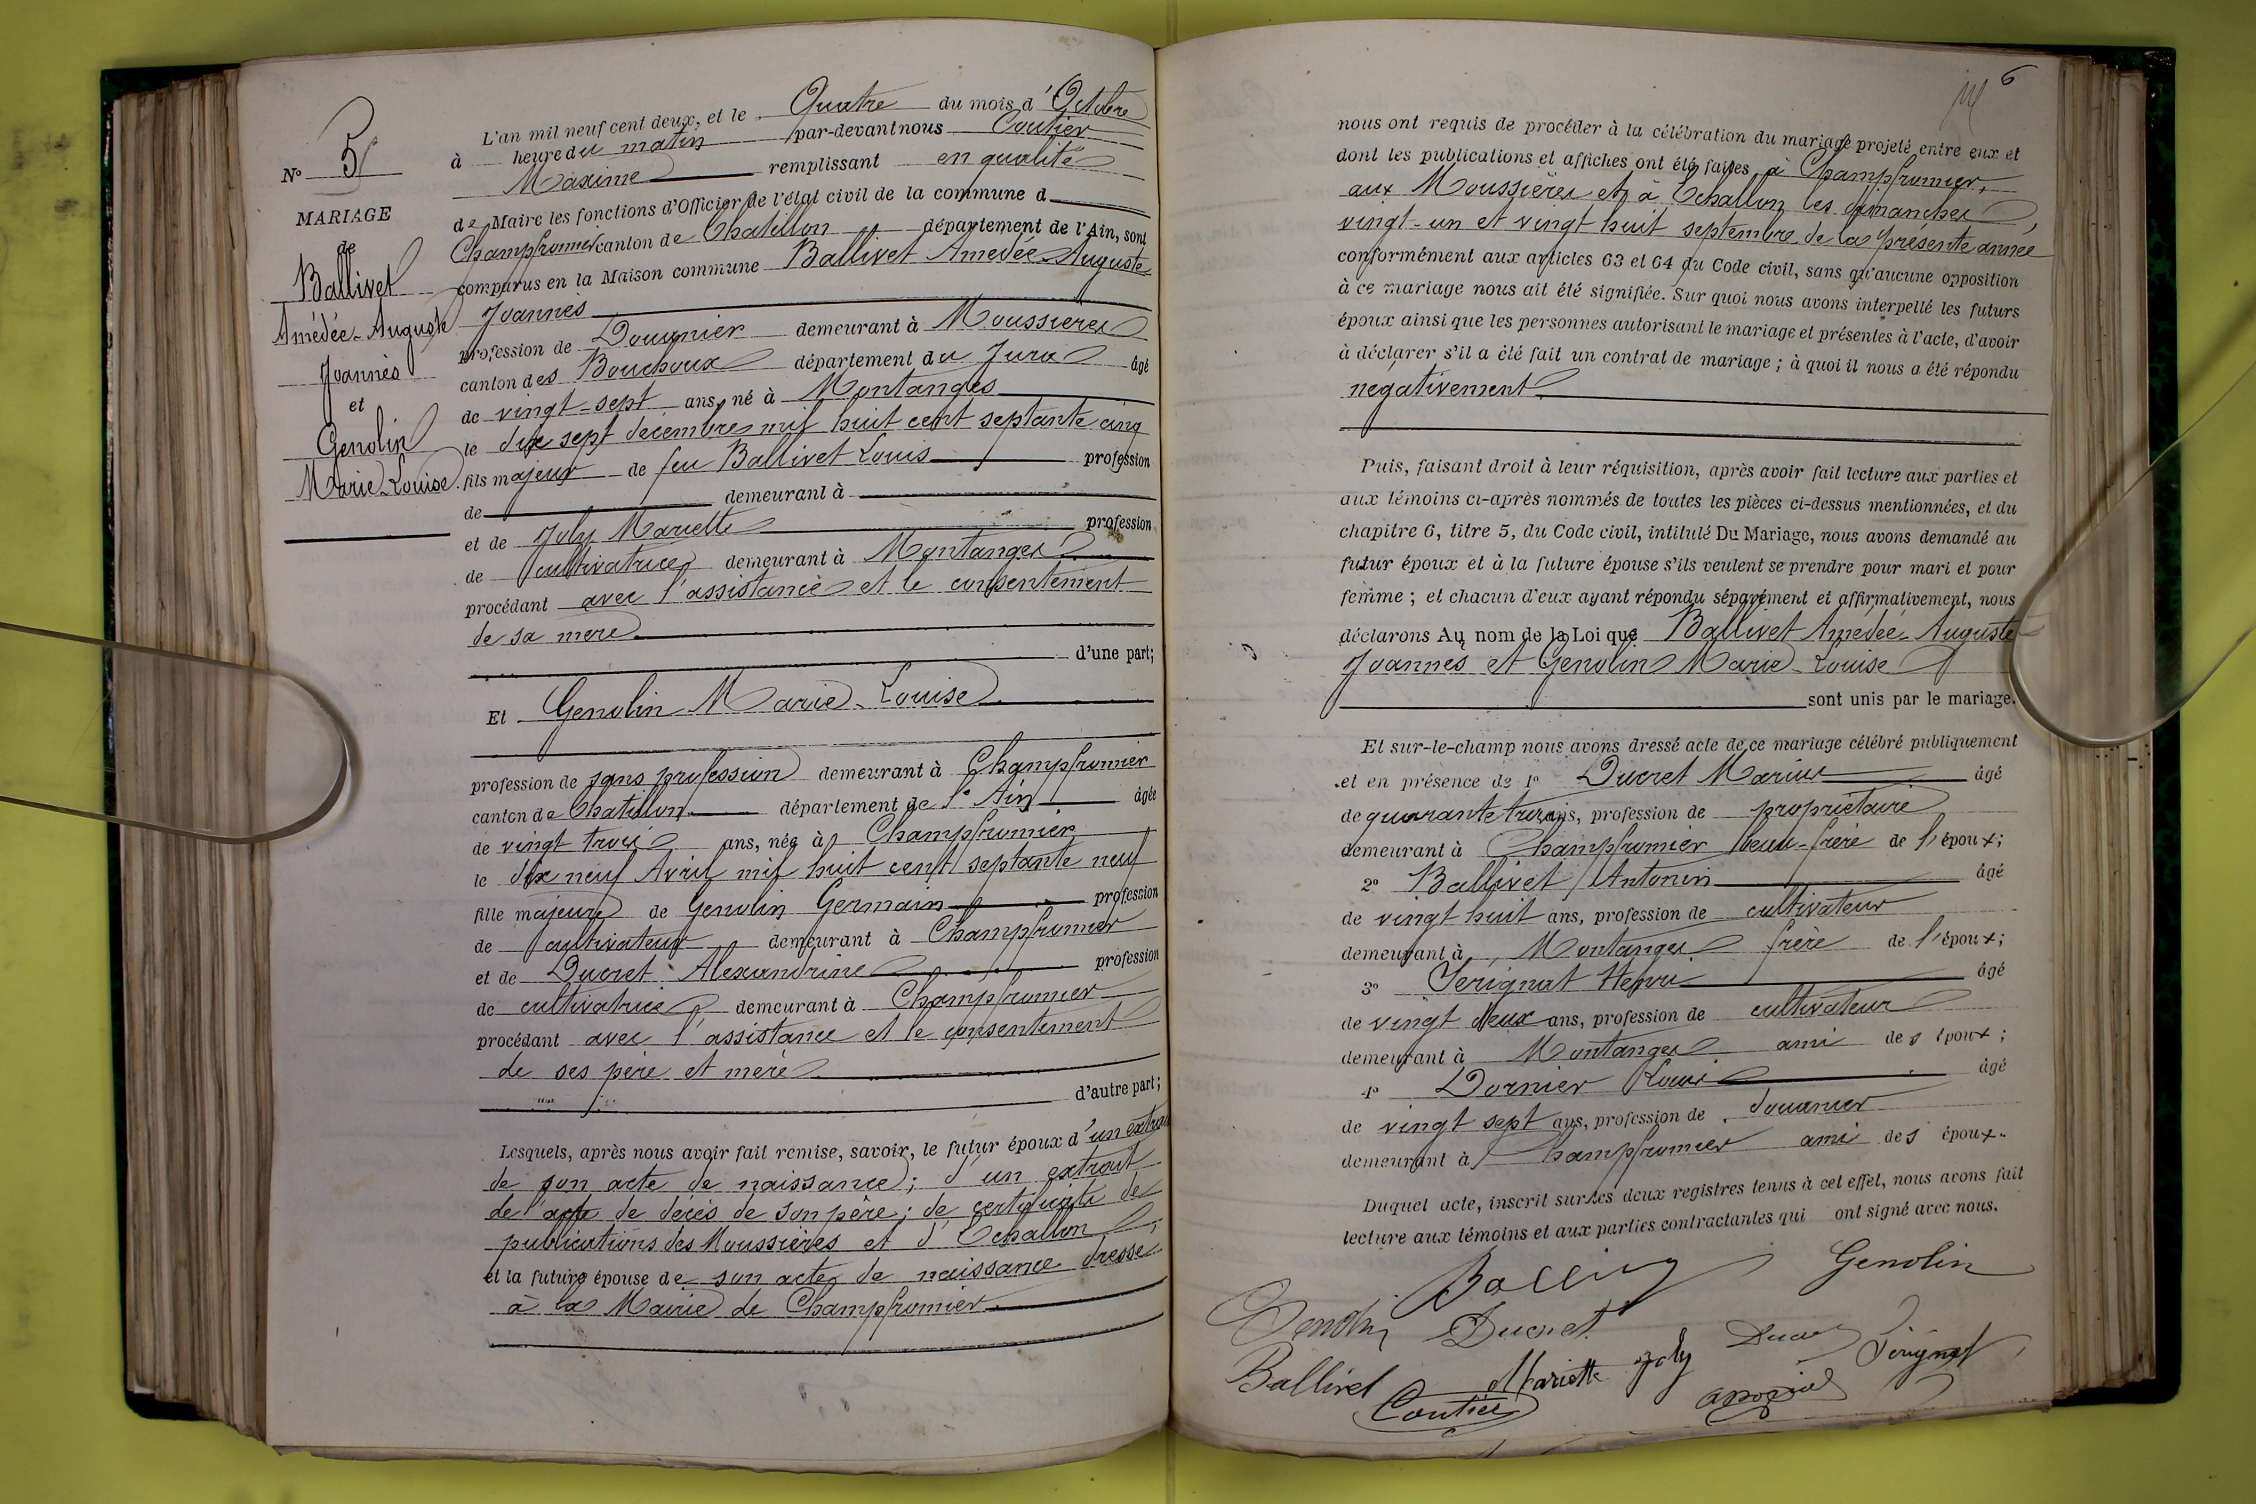 N° 5
MARIAGE
de
Ballivet
Amédée-Auguste
Joannès
et
Genolin
Marie-Louise
L'an mil neuf cent deux, et le Quatre du mois d'Octobre
à heure du matin par-devant nous Coutier
Maxime remplissant en qualité
de Maire les fonctions d'Officier de l'état civil de la commune d
Champfromier canton de Chatillon département de l'Ain, sont
comparus en la Maison commune Ballivet Amédée Auguste
Joannès
profession de Douanier demeurant à Moussières
canton des Bouchoux département du Jura âgé
de vingt-sept ans, né à Montanges
le dix sept décembre mil huit cent septante cinq
fils majeur de feu Ballivet Louis profession
de demeurant à
et de Joly Mariette profession
de cultivatrice demeurant à Montanges
procédant avec l'assistance et le consentement
de sa mère
d'une part;
Et Genolin Marie-Louise
profession de sans profession demeurant à Champfromier
canton de Chatillon département de l'Ain âgée
de vingt trois ans, née à Champfromier
le dix neuf Avril mil huit cent septante neuf
fille majeure de Genolin Germain profession
de cultivateur demeurant à Champfromier
et de Ducret Alexandrine profession
de cultivatrice demeurant à Champfromier
procédant avec l'assistance et le consentement
de ses père et mère
d'autre part;
Lesquels, après nous avoir fait remise, savoir, le futur époux d'un extrait
de son acte de naissance; d'un extrait
de l'acte de décès de son père; de certificats de
publications des Moussières et d'Echallon;
et la future épouse de son acte de naissance dressé
à la Mairie de Champfromier
6
nous ont requis de procéder à la célébration du mariage projeté entre eux et
dont les publications et affiches ont été faites à Champfromier,
aux Moussières et à Echallon les dimanches
vingt-un et vingt huit septembre de la présente année
conformément aux articles 63 et 64 du Code civil, sans qu'aucune opposition
à ce mariage nous ait été signifiée. Sur quoi nous avons interpellé les futurs
époux ainsi que les personnes autorisant le mariage et présentes à l'acte, d'avoir
à déclarer s'il a été fait un contrat de mariage; à quoi il nous a été répondu
négativement
Puis, faisant droit à leur réquisition, après avoir fait lecture aux parties et
aux témoins ci-après nommés de toutes les pièces ci-dessus mentionnées, et du
chapitre 6, titre 5, du Code civil, intitulé Du Mariage, nous avons demandé au
futur époux et à la future épouse s'ils veulent se prendre pour mari et pour
femme; et chacun d'eux ayant répondu séparément et affirmativement, nous
déclarons Au nom de la Loi que Ballivet Amédée-Auguste
Joannès et Genolin Marie-Louise
sont unis par le mariage.
Et sur-le-champ nous avons dressé acte de ce mariage célébré publiquement
et en présence de 1° Ducret Marius âgé
de quarante trois ans, profession de propriétaire
demeurant à Champfromier beau-frère de l'époux;
2° Ballivet Antonin âgé
de vingt huit ans, profession de cultivateur
demeurant à Montanges frère de l'époux;
3° Serignat Henri âgé
de vingt deux ans, profession de cultivateur
demeurant à Montanges ami des époux;
4° Dornier Louis âgé
de vingt sept ans, profession de douanier
demeurant à Champfromier ami des époux.
Duquel acte, inscrit sur les deux registres tenus à cet effet, nous avons fait
lecture aux témoins et aux parties contractantes qui ont signé avec nous.
Genolin
Genolin Ducret
Ballivet Mariette Joly Sérignat
Coutier